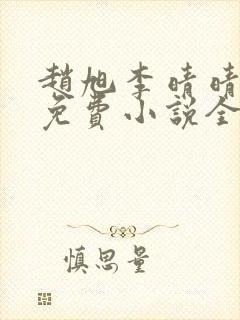 趙旭李晴晴
免費小說全
慎思量